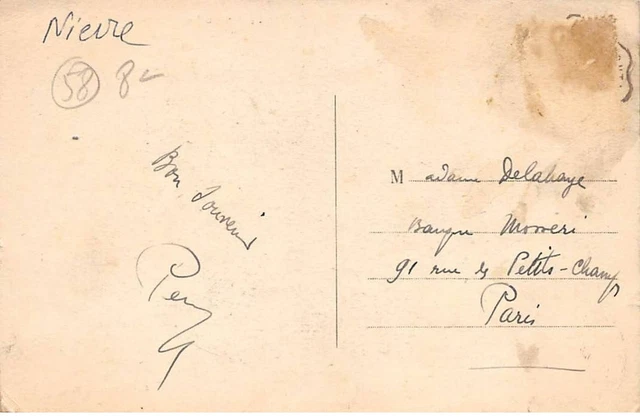 Nievre
58 8
Bon Souvenir
Madame Delahaye
Banque Mosseri
91 rue des Petits-Champs
Paris